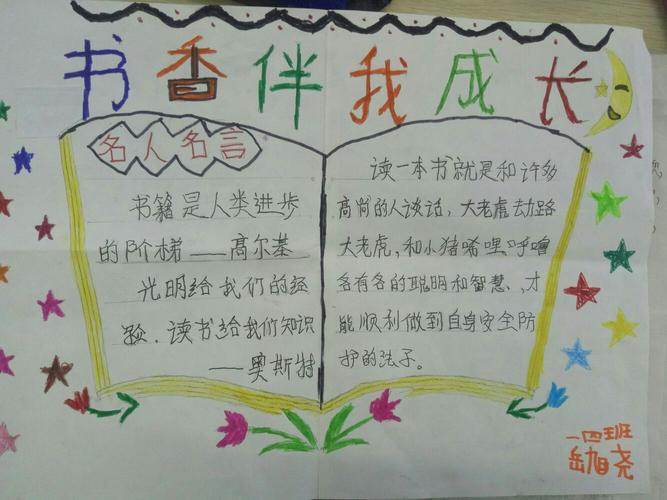 书香伴我成长
名人名言
书籍是人类进步
的阶梯——高尔基
光明给我们的经
验.读书给我们知识
——奥斯特
读一本书就是和许多
高尚的人谈话,大老虎去助路
大老虎,和小猪唏哩呼噜
各有各的聪明和智慧、才
能顺利做到自身安全防
护的法子。
一四班
岳旭尧